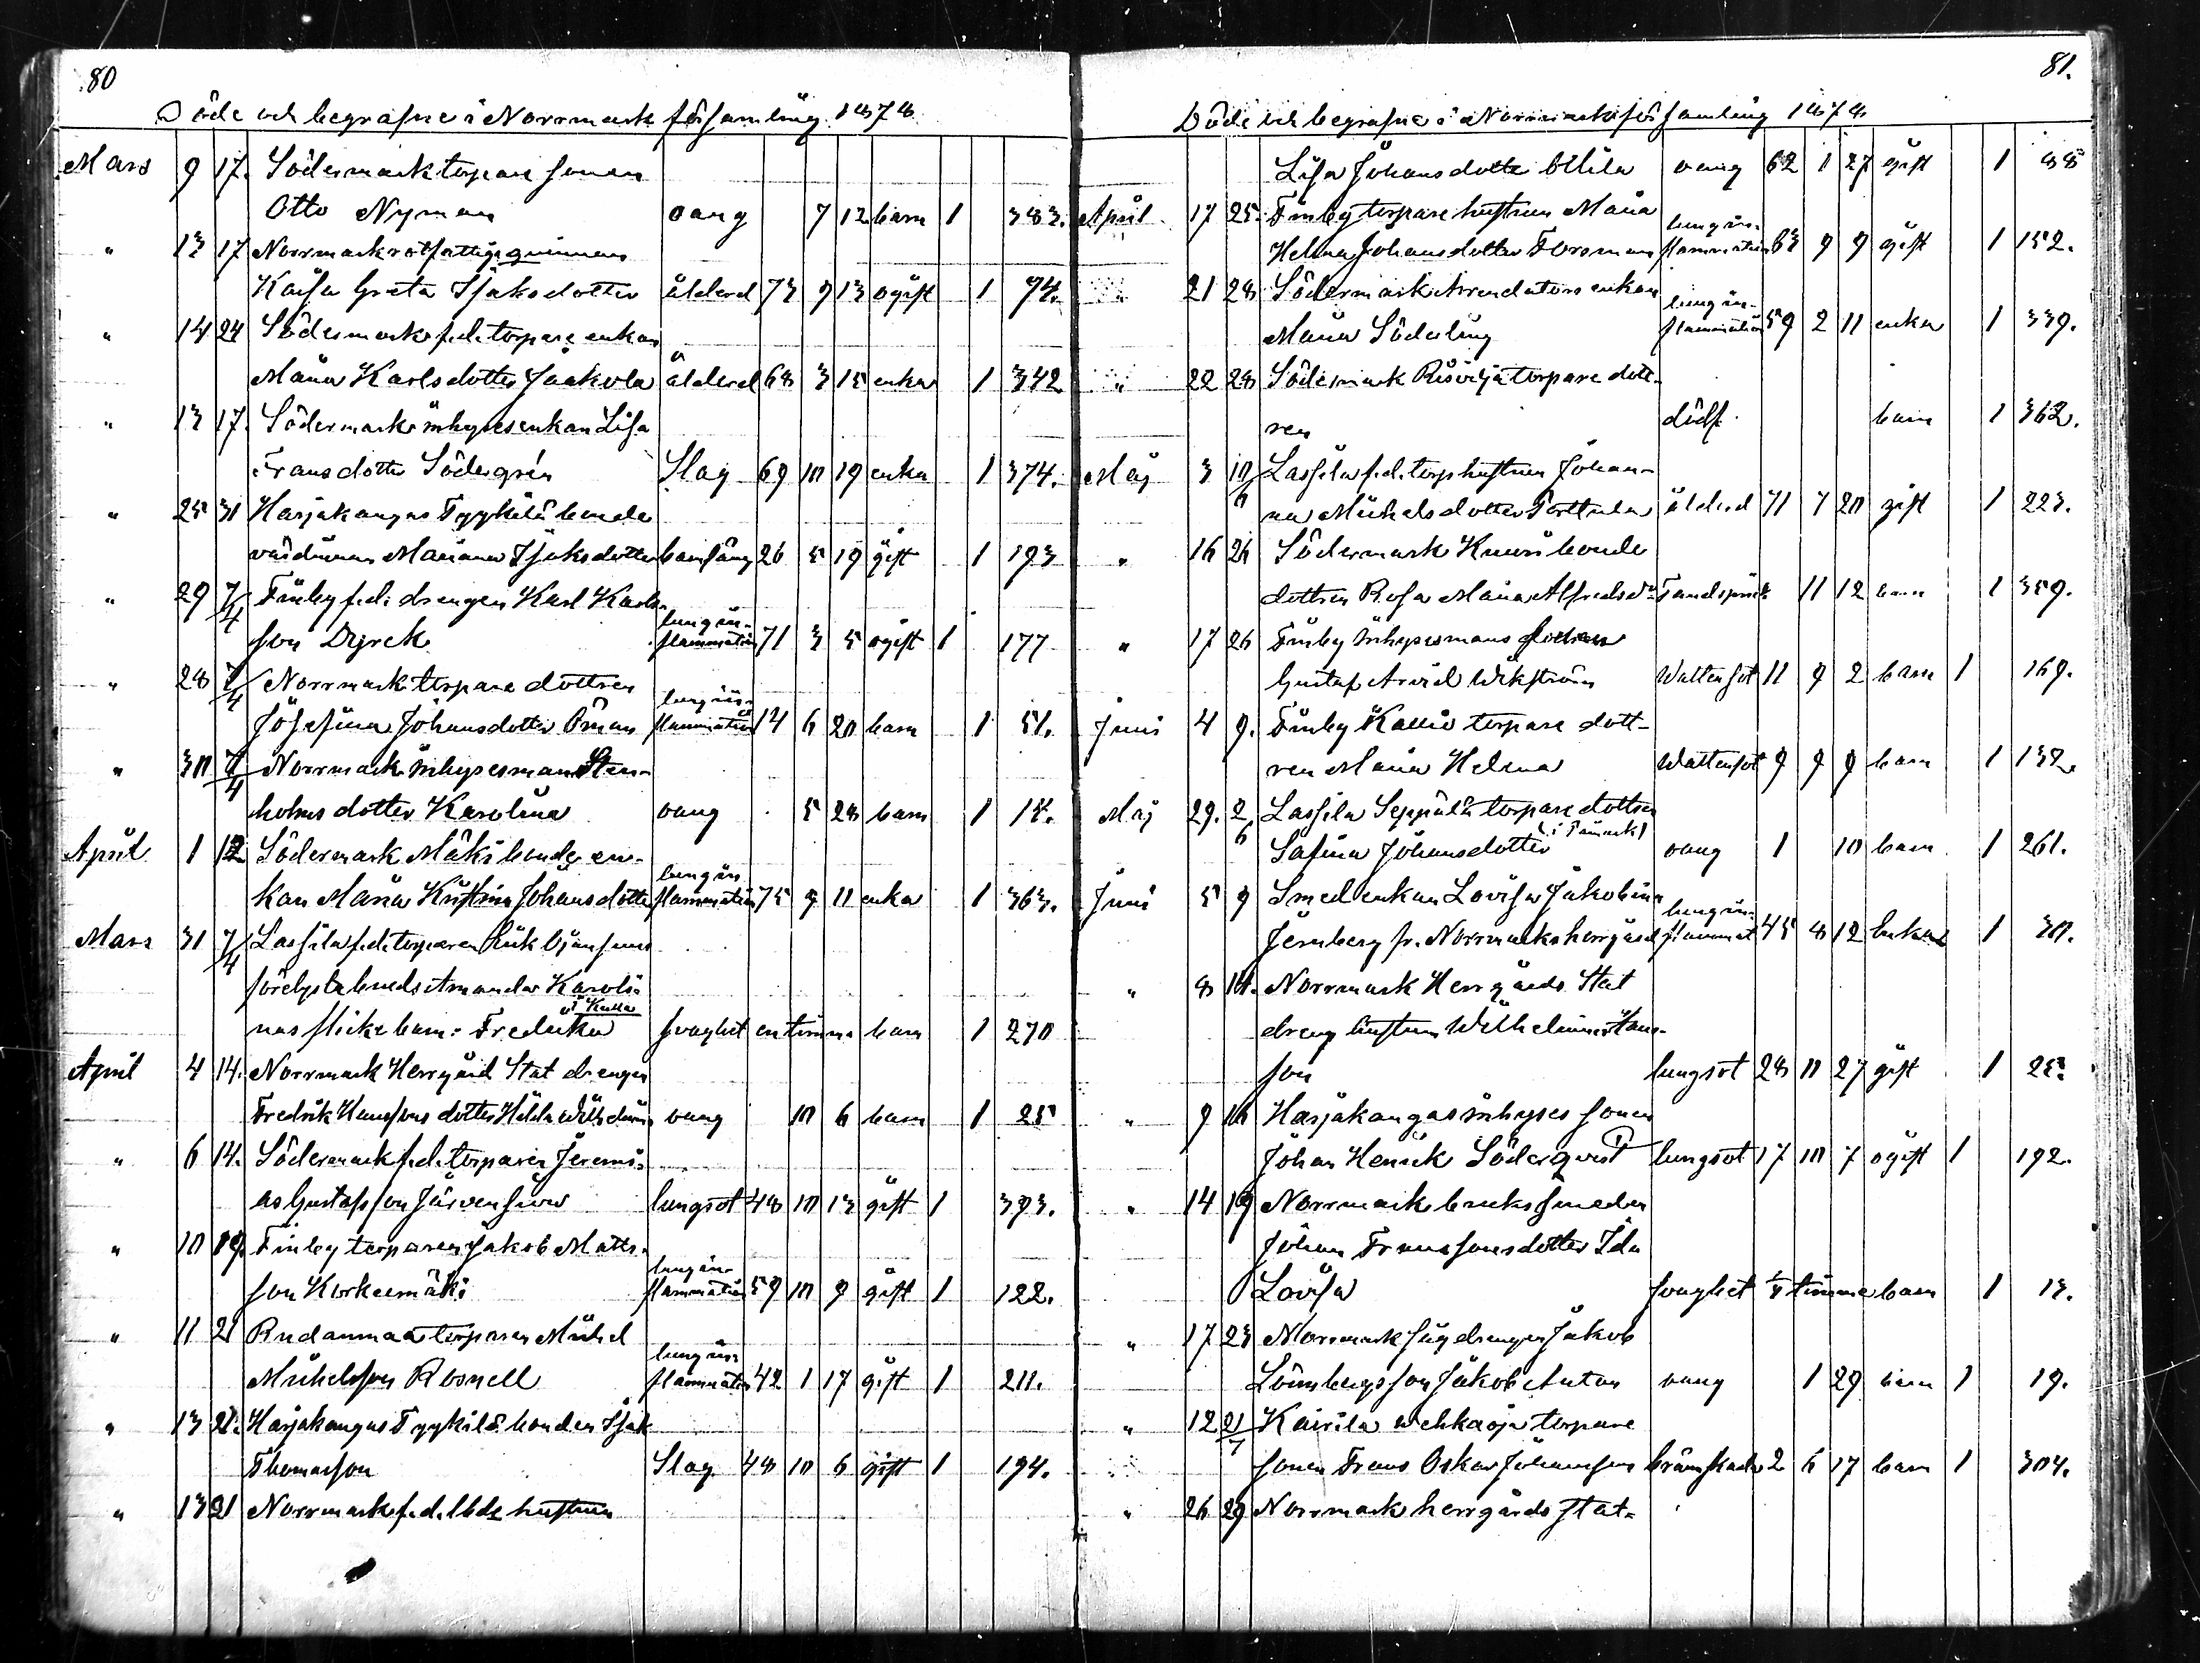 80
Döde och begrafne i Norrmark församling 1878
Mars 9 17. Södermark torpare sonen
Otto Nyman oang 7 12 barn 1 383.
" 13 17 Norrmark rotfattig qvinnan
Kaisa Greta Isaksdotter ålderd 73 9 13 ogift 1 94.
" 14 24 Södermark f.d. torpare enkan
Maria Karlsdotter Jaakola ålderd 68 3 15 enka 1 342
" 13 17. Södermark inhyses enkan Lisa
Fransdotter Södergrén Slag 69 10 19 enka 1 374.
" 25 31 Harjakangas Tyykilä bonde
värdinnan Mariana Isaksdotter barnsäng 26 5 19 gift 1 193
" 29 7/4 Finby f.d. drengen Karl Karls-
son Dyrck lungin-flammation 71 3 5 ogift 1 177
" 28 7/4 Norrmark torpare dottren
Josefina Johansdotter Öman lungin-flammation 14 6 20 barn 1 51.
" 30 7/4 Norrmark inhysesman Sten-
holms dotter Karolina oang 5 28 barn 1 15.
April 1 12 Södermark Mäki bonde en-
kan Maria Kristina Johansdotter lungin-flammation 75 9 11 enka 1 363.
Mars 31 7/4 Lassila f.d. torparen Erik
Amanda Karoli-
nas flicke barn: Frederika svaghet en timme barn 1 270
April 4 14. Norrmark Herrgård Stat drengen
Fredrik Hanssons dotter Hilda Wilhelmina oang 10 6 barn 1 25
" 6 14. Södermark f.d. torparen Jeremi-
as Gustafsson Järvensivu lungsot 48 10 13 gift 1 393.
" 10 19. Finby torparen Jakob Matts-
son Korkeemäki lungin-flammation 59 10 9 gift 1 122.
" 11 21 Rudanmaa torparen Mickel
Mickelsson Rosnell lungin-flammation 42 1 17 gift 1 211.
" 13 21. Harjakangas Tyykilä bonden Isak
Thomasson Slag 48 10 6 gift 1 194.
" 13 21 Norrmark f.d. hustrun
81.
Döde och begrafne i Norrmark församling 1878
Lisa Johansdotter oang 62 1 27 gift 1 88
April 17 25. Finby torpare hustrun Maria
Helena Johansdotter Forsman lungin-flammation 63 9 9 gift 1 152.
" 21 28 Södermark Arrendators enkan
Maria Söderling lungin-flammation 59 2 11 enka 1 339.
" 22 28 Södermark torpare dott-
ren dödf. barn 1 362.
Maj 3 10/6 Lassila f.d. torp hustrun Johan-
na Michelsdotter ålderd 71 7 20 gift 1 223.
" 16 26 Södermark Knuusi bonde
dottren Rosa Maria Alfredsdr Tandspric. 11 12 barn 1 359.
" 17 26 Finby inhysesmans sonen
Gustaf Arvid Wikström Wattensot 11 9 2 barn 1 169.
Juni 4 9. Finby Kallio torpare dott-
ren Maria Helena Wattensot 9 9 9 barn 1 132.
Maj 29. 2/6 Lassila Seppälä torpare dottren
Safina Johansdotter oang 1 10 barn 1 261.
Juni 5 9 Smed enkan Lovisa Jakobina
Jernberg fr. Norrmarks herrgård lungin-flammat 45 8 12 enka 1 30.
" 8 14. Norrmark Herrgårds Stat
dreng hustrun Wilhelmina Hans-
son lungsot 28 11 27 gift 1 25.
" 9 16 Harjakangas inhyses sonen
Johan Henrik Söderqvist lungsot 17 10 7 ogift 1 192.
" 14 19 Norrmark bruks smeden
Johan Franssons dotter Ida
Lovisa svaghet timme barn 1 13.
" 17 23 Norrmark sågdrengen Jakob
Lönnbergs son Jakob Anton oang 1 29 barn 1 19.
" 12 21/7 Kairila Wehkaoja torpare
sonen Frans Oskar Johansson brännskada 2 6 17 barn 1 304.
" 26 29 Norrmark herrgårds stat-